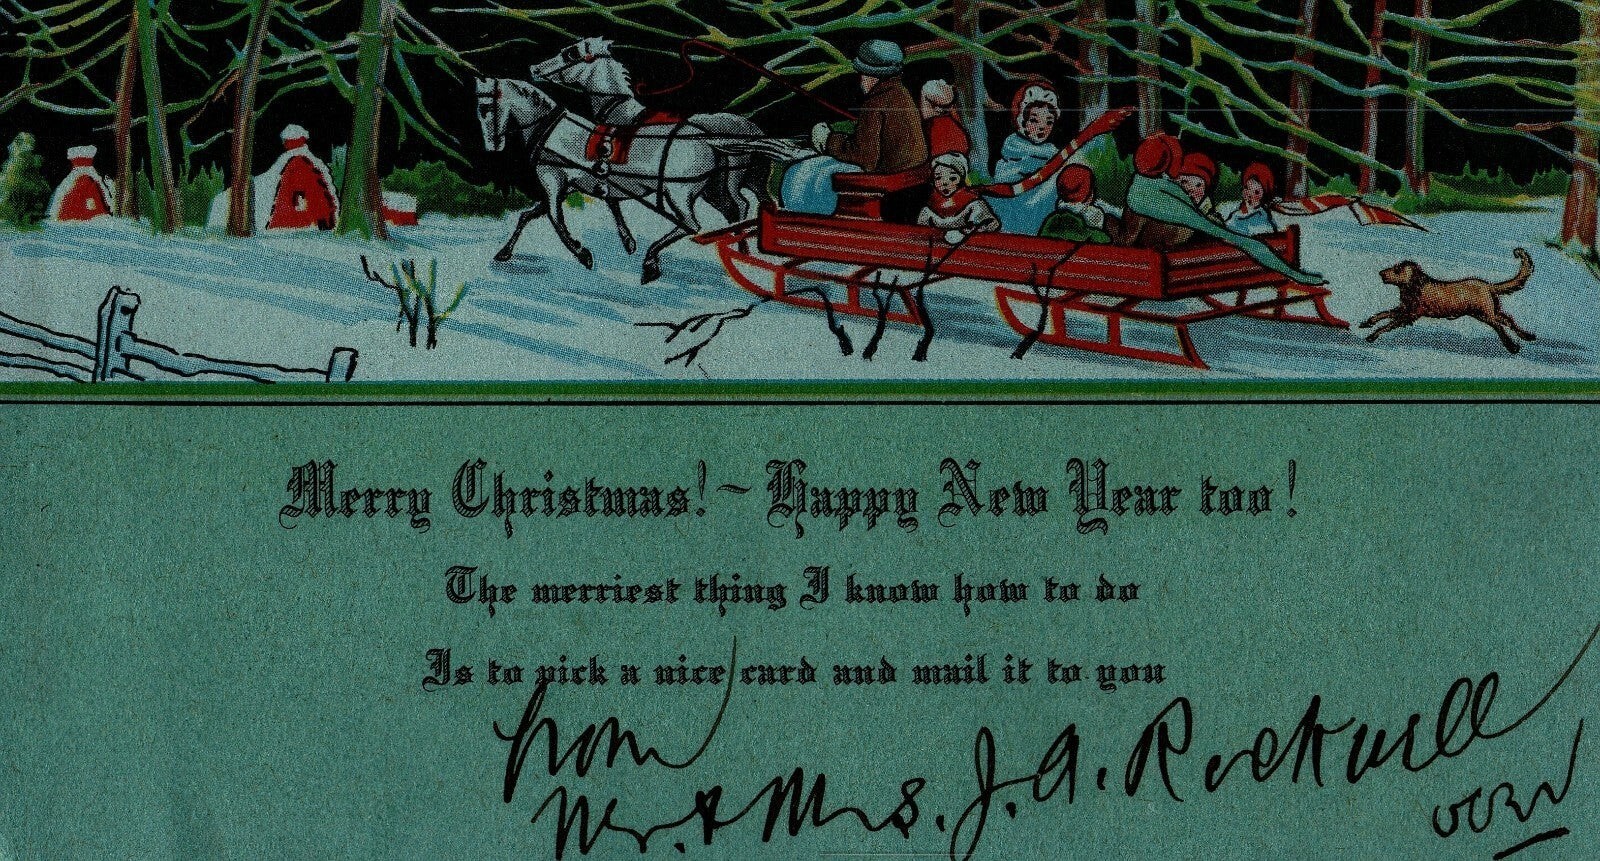 Merry Christmas! ~ Happy New Year too!
The merriest thing I know how to do
Is to pick a nice card and mail it to you
from
Mr. & Mrs. J. A. Rockwell
over